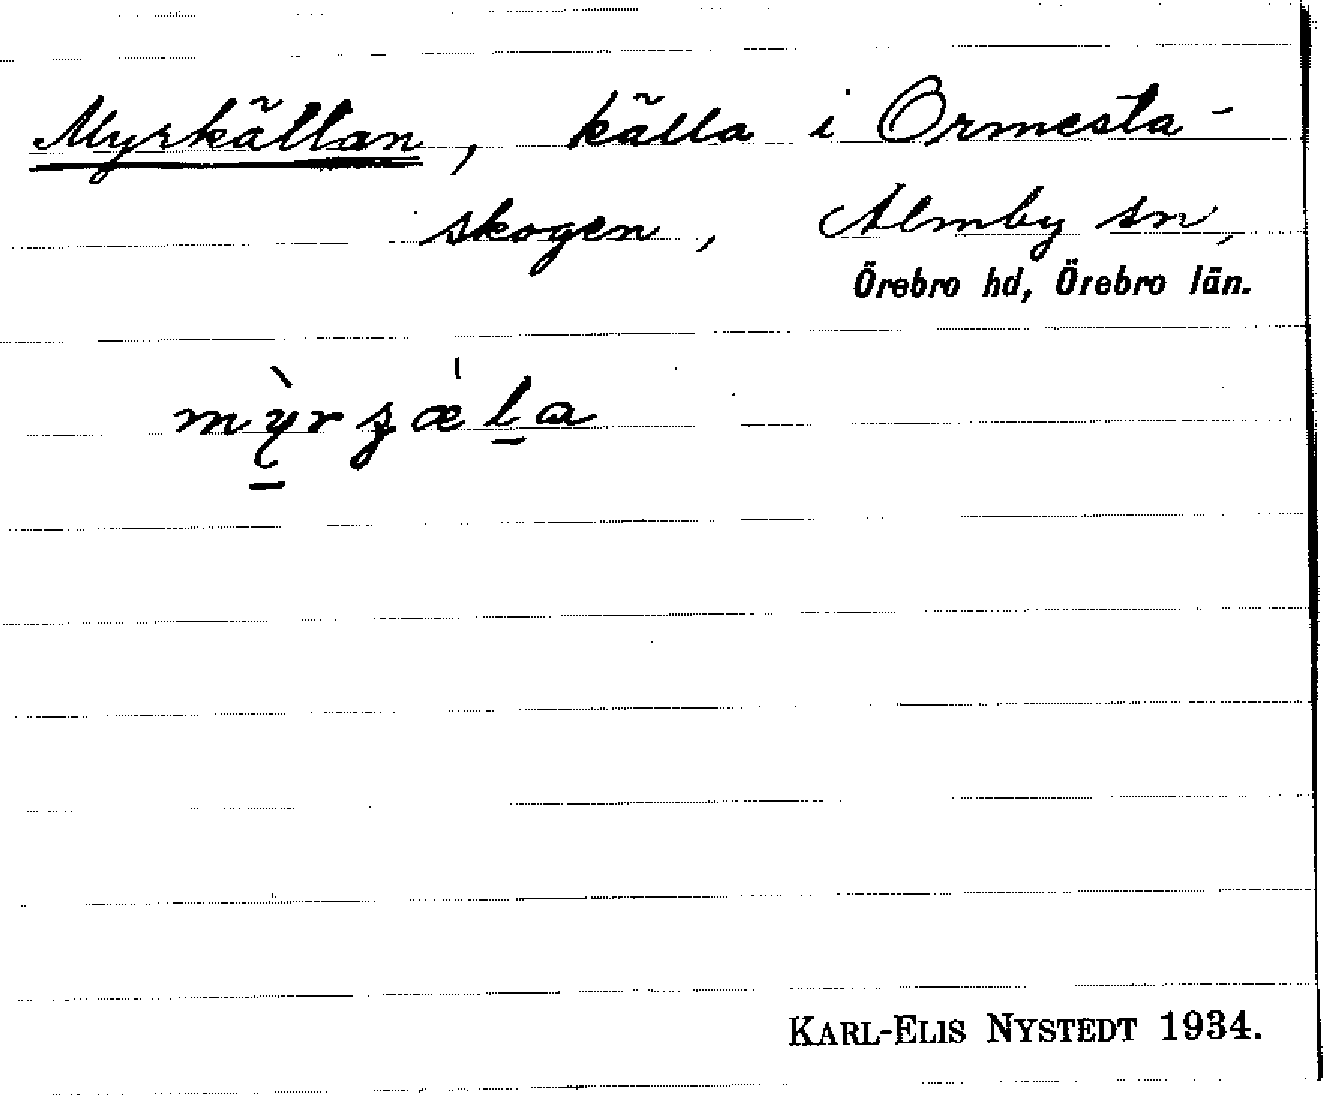 Myrkällan, källa i Ormesta-
skogen, Almby sn,
Örebro hd, Örebro län.
mỳrʓæ̀la
KARL-ELIS NYSTEDT 1934.